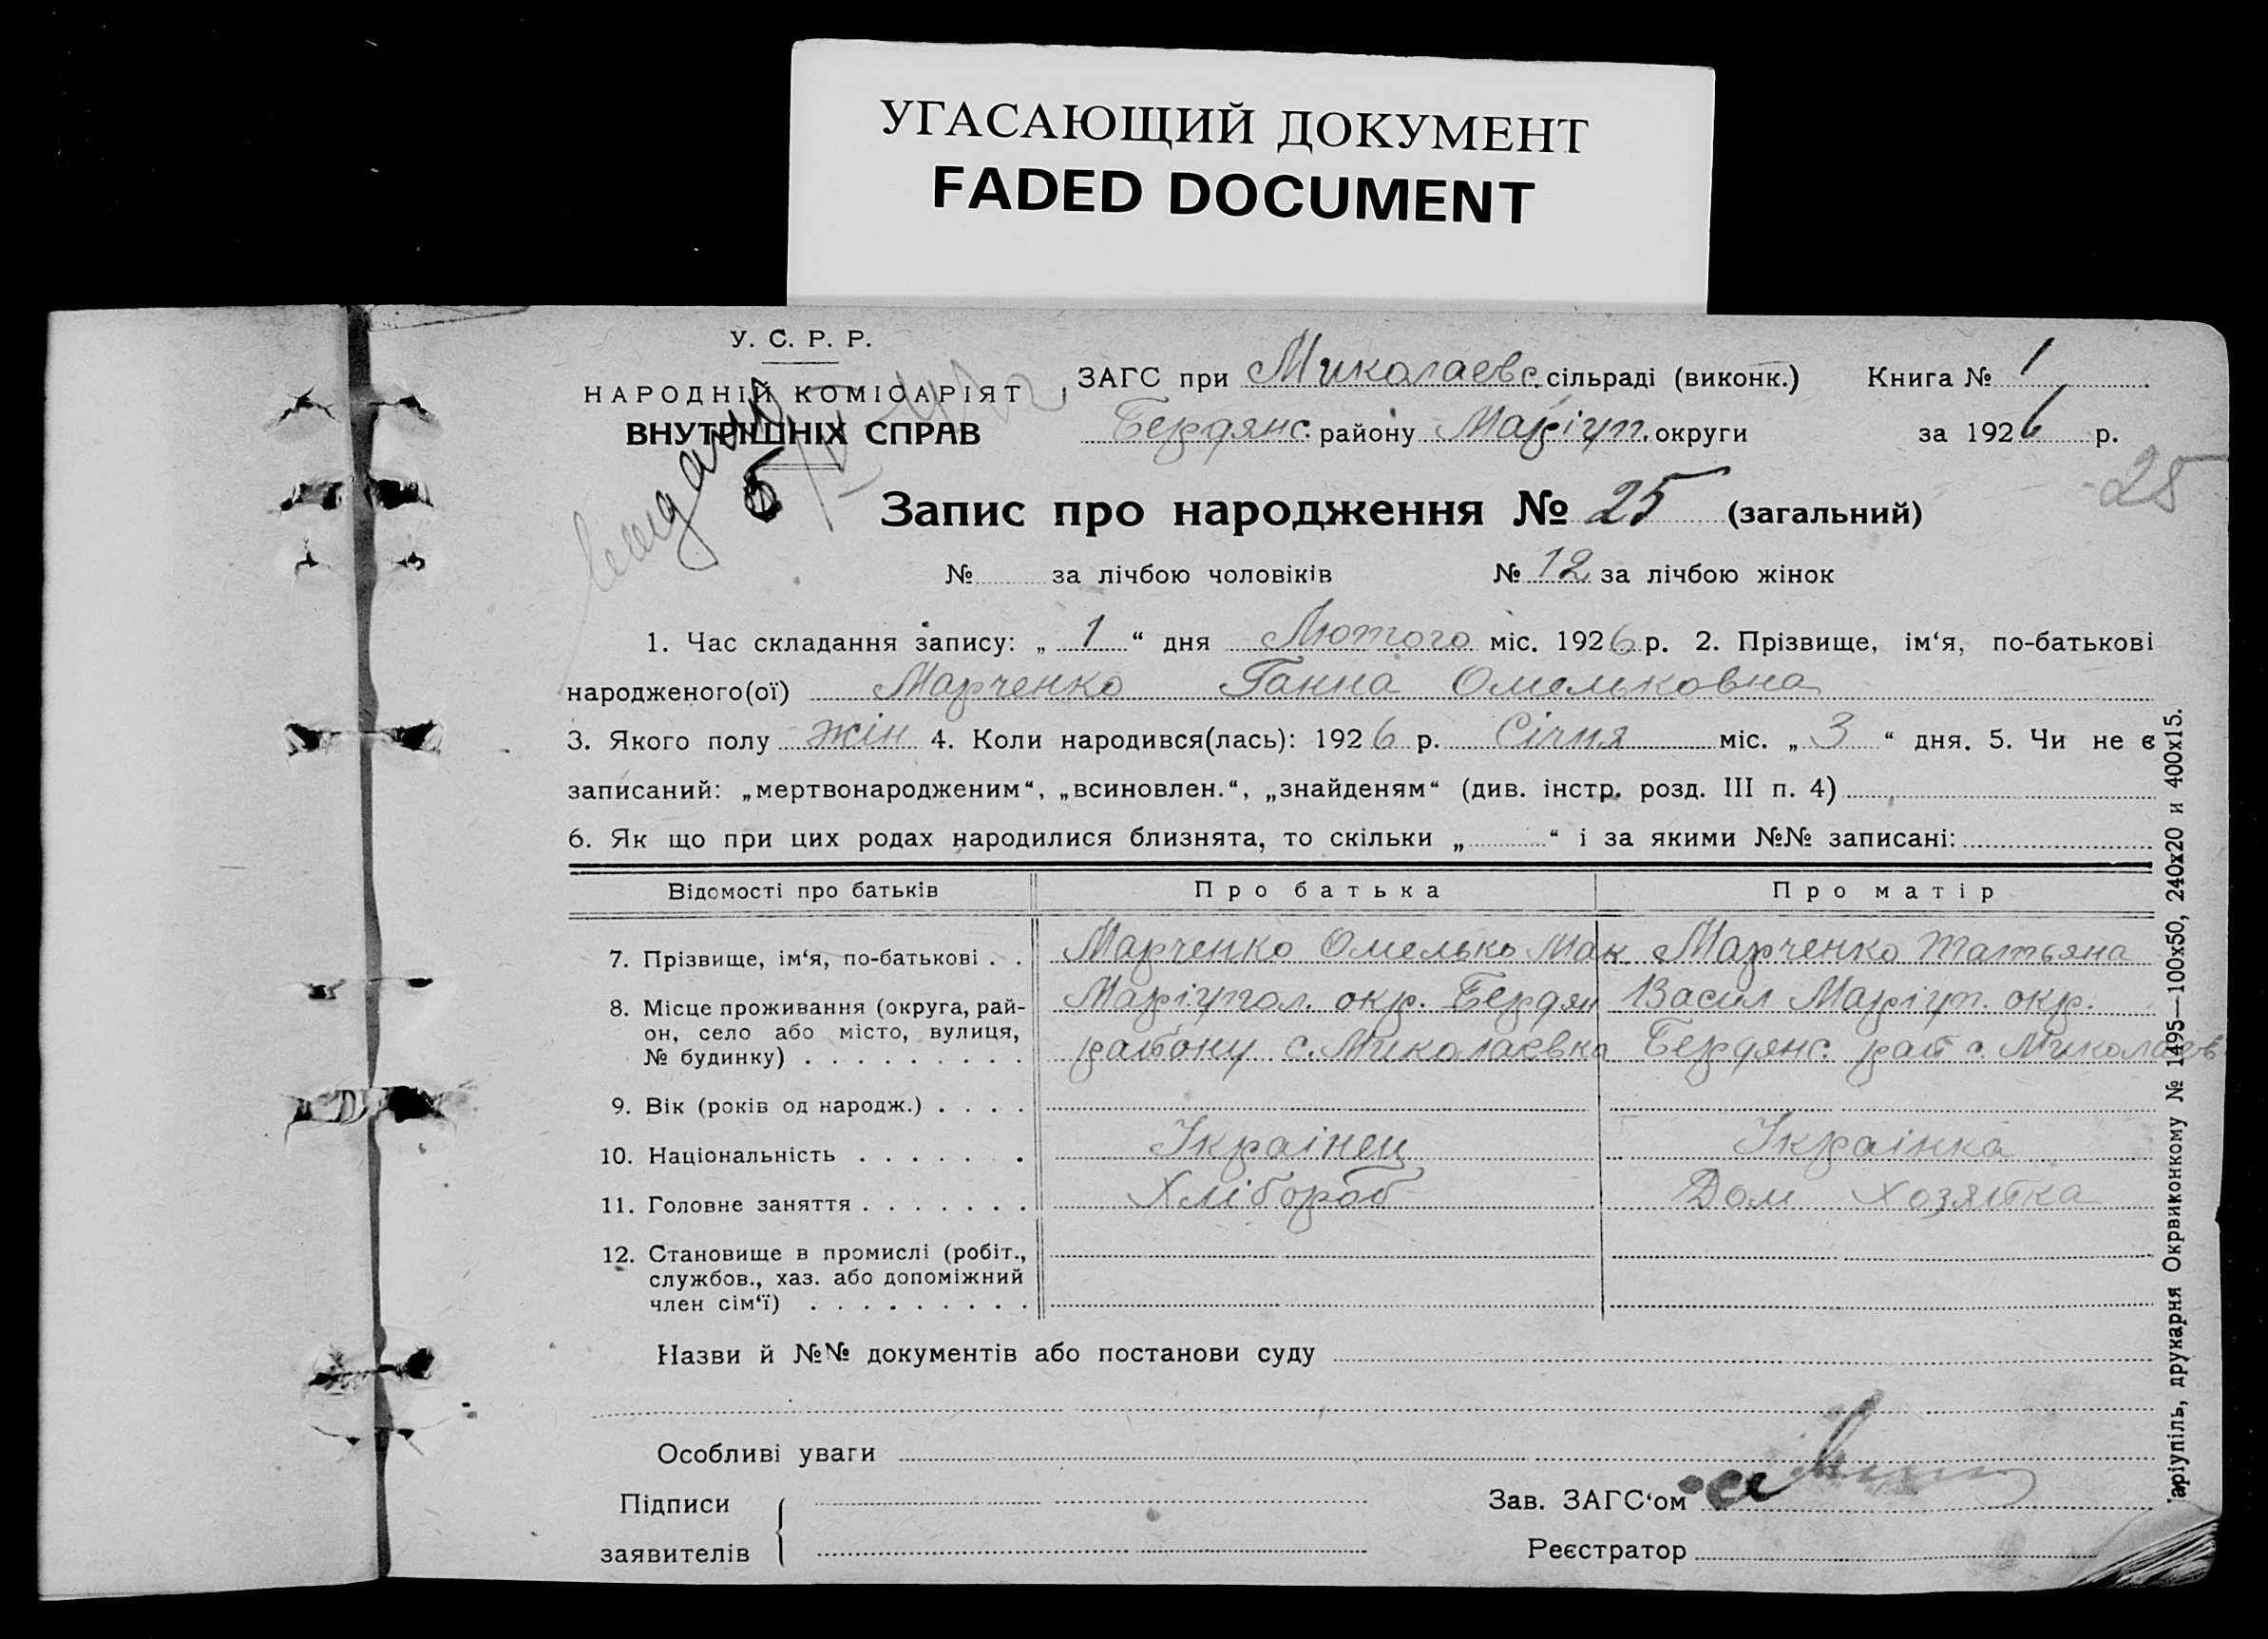 УГАСАЮЩИЙ ДОКУМЕНТ
FADED DOCUMENT
У. С. Р. Р.
НАРОДНІЙ КОМІСАРІЯТ
ВНУТРІШНІХ СПРАВ
ЗАГС при Миколаевс. сільраді (виконк.) Книга № 1
Бердянс. району Маріуп. округи за 1926 р.
25
Запис про народження № 25 (загальний)
№ за лічбою чоловіків № 12 за лічбою жінок
1. Час складання запису: „ 1 “ дня Лютого міс. 1926 р. 2. Прізвище, ім‘я, по-батькові
народженого(ої) Марченко Ганна Омельковна
3. Якого полу жін 4. Коли народився(лась): 1926 р. Січня міс. „ 3 “ дня. 5. Чи не є
записаний: „мертвонародженим“, „всиновлен.“, „знайденям“ (див. інстр. розд. III п. 4)
6. Як що при цих родах народилися близнята, то скільки „ “ і за якими №№ записані:
Відомості про батьків Про батька Про матір
7. Прізвище, ім‘я, по-батькові . . Марченко Омелько Мак. Марченко Татьяна
8. Місце проживання (округа, рай- Маріупол. окр. Бердян Васил Маріуп. окр.
он, село або місто, вулиця,
№ будинку) . . . . . . . . . району с. Миколаевка Бердянс. рай с. Миколаев
9. Вік (років од народж.) . . . .
10. Національність . . . . . . . Україінец Україінка
11. Головне заняття . . . . . . . Хлібороб Дом хозяйка
12. Становище в промислі (робіт.,
службов., хаз. або допоміжний
член сім‘ї) . . . . . . . . .
Назви й №№ документів або постанови суду
Особливі уваги
Підписи
заявителів
Зав. ЗАГС‘ом
Реєстратор
аріупіль, друкарня Окрвиконкому № 1495—100х50, 240х20 и 400х15.